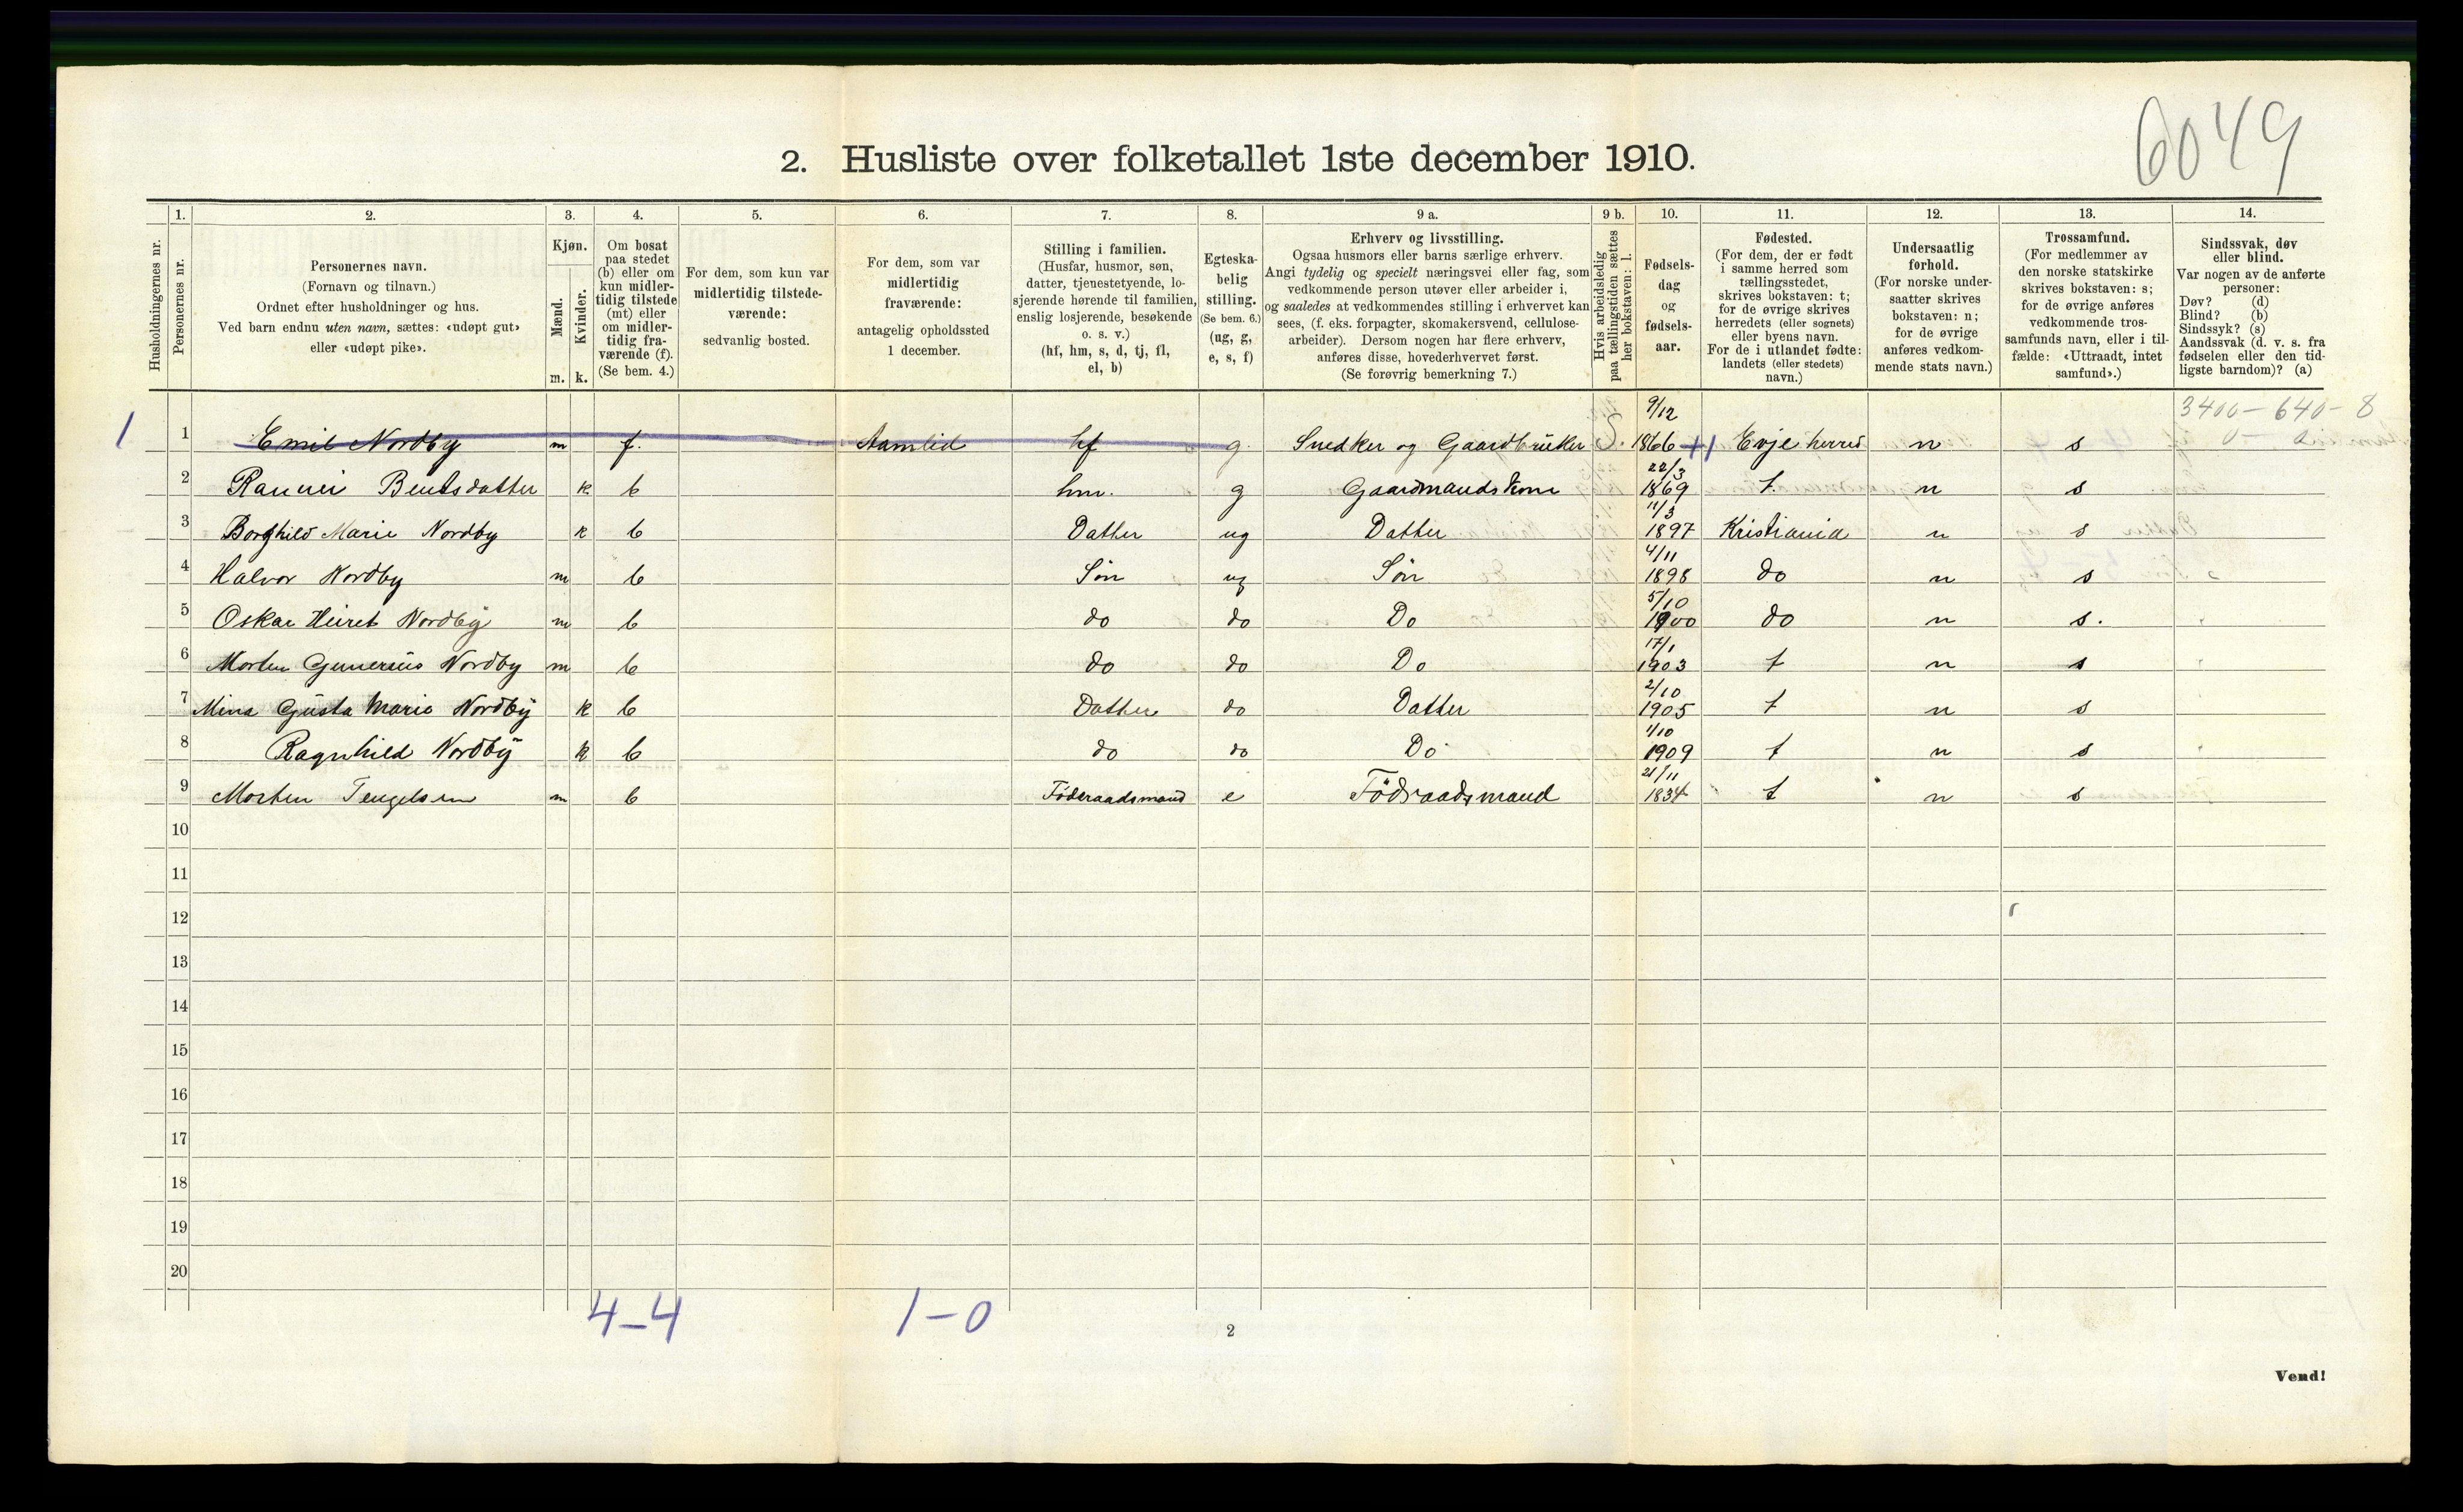 6049
2. Husliste over folketallet 1ste december 1910.
Husholdningernes nr.
1. Personernes nr.
2. Personernes navn.
(Fornavn og tilnavn.)
Ordnet efter husholdninger og hus.
Ved barn endnu uten navn, sættes: «udøpt gut»
eller «udøpt pike».
3. Kjøn.
Mænd. m.
Kvinder. k.
4. Om bosat
paa stedet
(b) eller om
kun midler-
tidig tilstede
(mt) eller
om midler-
tidig fra-
værende (f).
(Se bem. 4.)
5. For dem, som kun var
midlertidig tilstede-
værende:
sedvanlig bosted.
6. For dem, som var
midlertidig
fraværende:
antagelig opholdssted
1 december.
7. Stilling i familien.
(Husfar, husmor, søn,
datter, tjenestetyende, lo-
sjerende hørende til familien,
enslig losjerende, besøkende
o. s. v.)
(hf, hm, s, d, tj, fl,
el, b)
8. Egteska-
belig
stilling.
(Se bem. 6.)
(ug, g,
e, s, f)
9 a. Erhverv og livsstilling.
Ogsaa husmors eller barns særlige erhverv.
Angi tydelig og specielt næringsvei eller fag, som
vedkommende person utøver eller arbeider i,
og saaledes at vedkommendes stilling i erhvervet kan
sees, (f. eks. forpagter, skomakersvend, cellulose-
arbeider). Dersom nogen har flere erhverv,
anføres disse, hovederhvervet først.
(Se forøvrig bemerkning 7.)
9 b. Hvis arbeidsledig
paa tællingstiden sættes
her bokstaven: l.
10. Fødsels-
dag
og
fødsels-
aar.
11. Fødested.
(For dem, der er født
i samme herred som
tællingsstedet,
skrives bokstaven: t;
for de øvrige skrives
herredets (eller sognets)
eller byens navn.
For de i utlandet fødte:
landets (eller stedets)
navn.)
12. Undersaatlig
forhold.
(For norske under-
saatter skrives
bokstaven: n;
for de øvrige
anføres vedkom-
mende stats navn.)
13. Trossamfund.
(For medlemmer av
den norske statskirke
skrives bokstaven: s;
for de øvrige anføres
vedkommende tros-
samfunds navn, eller i til-
fælde: «Uttraadt, intet
samfund».)
14. Sindssvak, døv
eller blind.
Var nogen av de anførte
personer:
Døv? (d)
Blind? (b)
Sindssyk? (s)
Aandssvak (d. v. s. fra
fødselen eller den tid-
ligste barndom)? (a)
3400 - 640 - 8
0 - 0
1 1 Emil Nordby m f. Aamlid hf g. Snedker og Gaardbruker 9/12 1866 Evje herred n s
2 Rannei Bentsdatter k b hm. g Gaardmandskone 22/3 1869 t. n s
3 Borghild Marie Nordby k b Datter ug Datter 11/3 1897 Kristiania n s
4 Halvor Nordby m b Søn ug Søn 4/11 1898 do n s
5 Oskar Nordby m b do do Do 5/10 1900 do n s.
6 Morten Gunerius Nordby m b do do Do 17/1 1903 t n s
7 Mina Gusta Marie Nordby k b Datter do Datter 2/10 1905 t n s
8 Ragnhild Nordby k b do do Do 1/10 1909 t n s
9 Morten Tengelsen m b Føderaadsmand e Födraadsmand 21/11 1834 t n s
10
11
12
13
14
15
16
17
18
19
20
4-4 1-0
2
Vend!